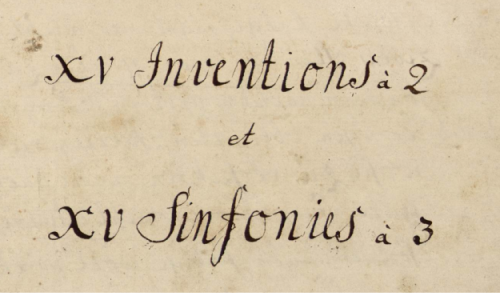 XV Inventions à 2
et
XV Sinfonies à 3